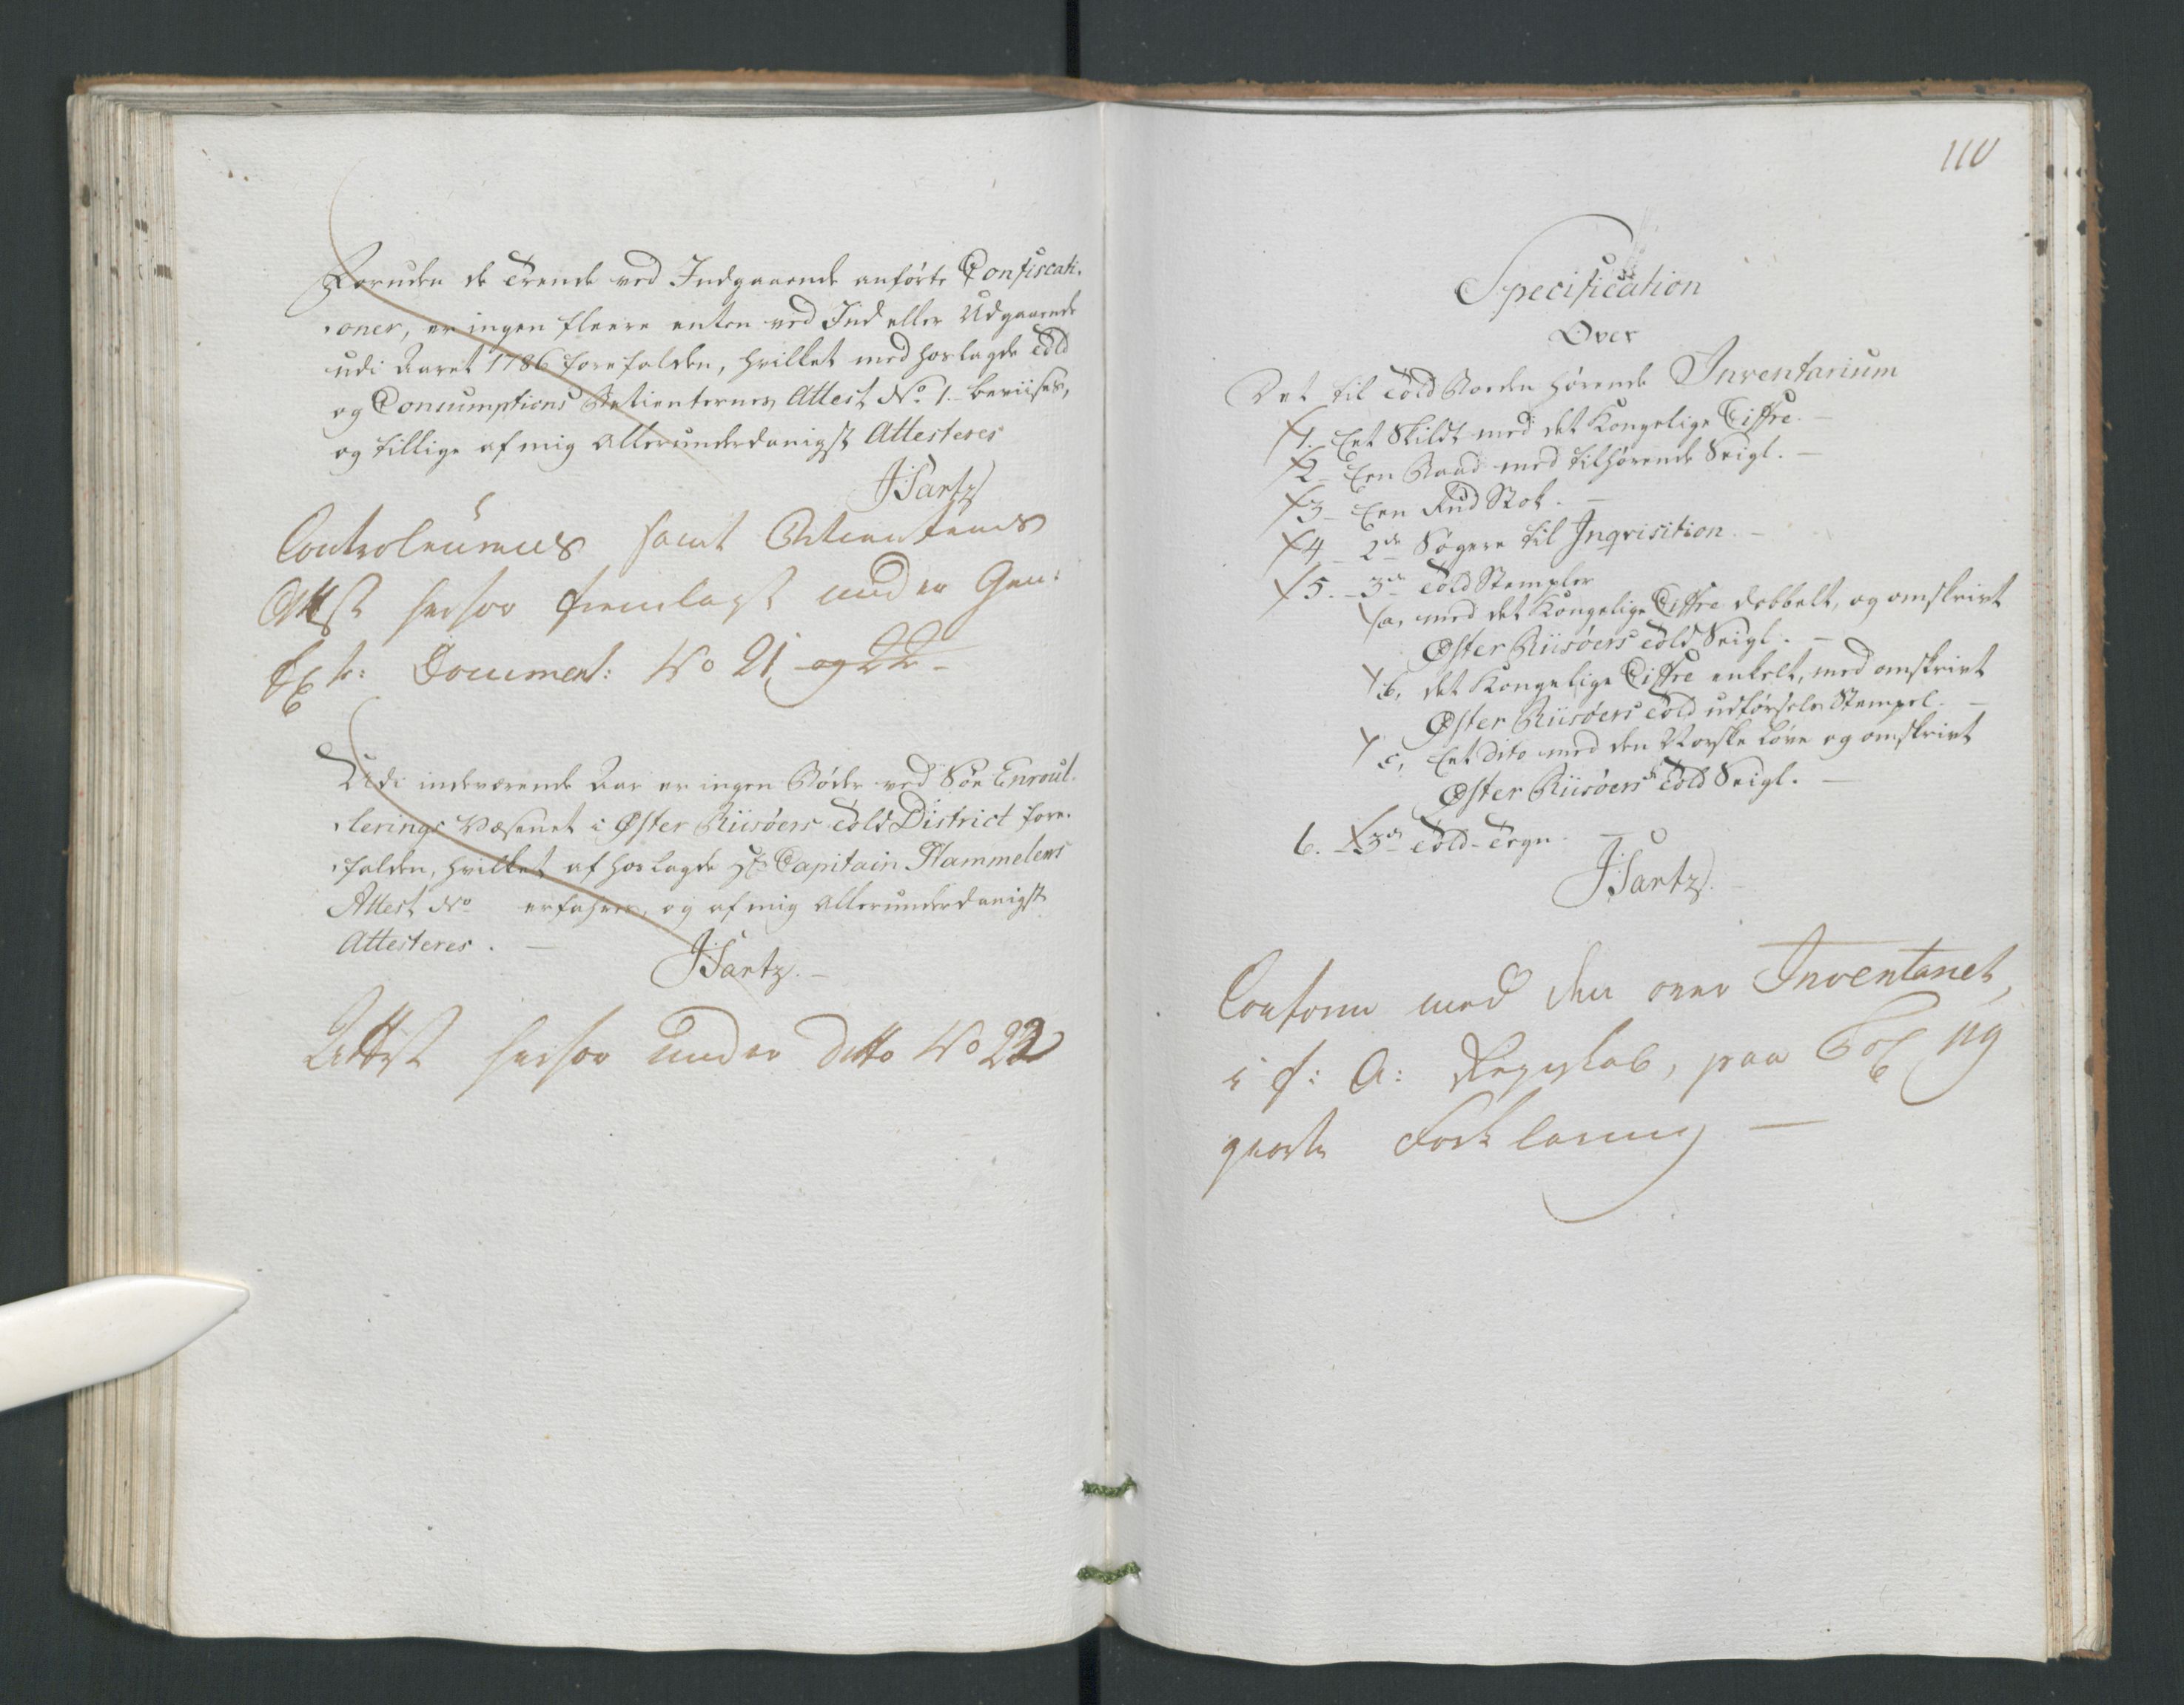 Foruden de Trende ved Indgaaende anførte Confiscati-
-oner, er ingen fleere enten ved Ind eller Udgaaende
udi Aaret 1786 forefalden, hvilket med hoslagde Told
og Consumptions Betienternes Attest No 1. beviises,
og tillige af mig allerunderdanigst Attesteres
JHartz
Controleurens samt Betienternes
Attst herfor fremlagt under Gen:
Document: No 21 og 22 -
Udi indeværende Aar er ingen Bøder ved Søe Enroul-
-lerings Væsenet i Øster Riisøers Told District fore-
-falden, hvilket af hoslagde Hr Capitain Hammelens
Attest No erfahres, og af mig allerunderdanigst
Attesteres. -
JHartz. -
Attst herfor under ditto No 22
110
Specification
Over
Det til Told Boeden hørende Inventarium
1. Eet Skildt med det Kongelige Ciffre. -
2 - Een Baad med tilhørende Seigl. -
3 - Een Stok. -
4 - 2de Søgere til Inqvisition -
5. - 3de Told Stempler
a, med det Kongelige Ciffre dobbelt, og omskrivt
Øster Riisøers Told Seigl. -
b, det Kongelige Ciffre enkelt, med omskrivt
Øster Riisøers Told udførsels Stempel. -
c, Eet dito med den Norske Løve og omskrivt
Øster Riisøers Told Seigl. -
6. - 3de Told-Tegn. -
JHartz. -
Conform med den over Inventariet,
i f: A: Regnskab, paa Fol 119
giorte Forklaring -